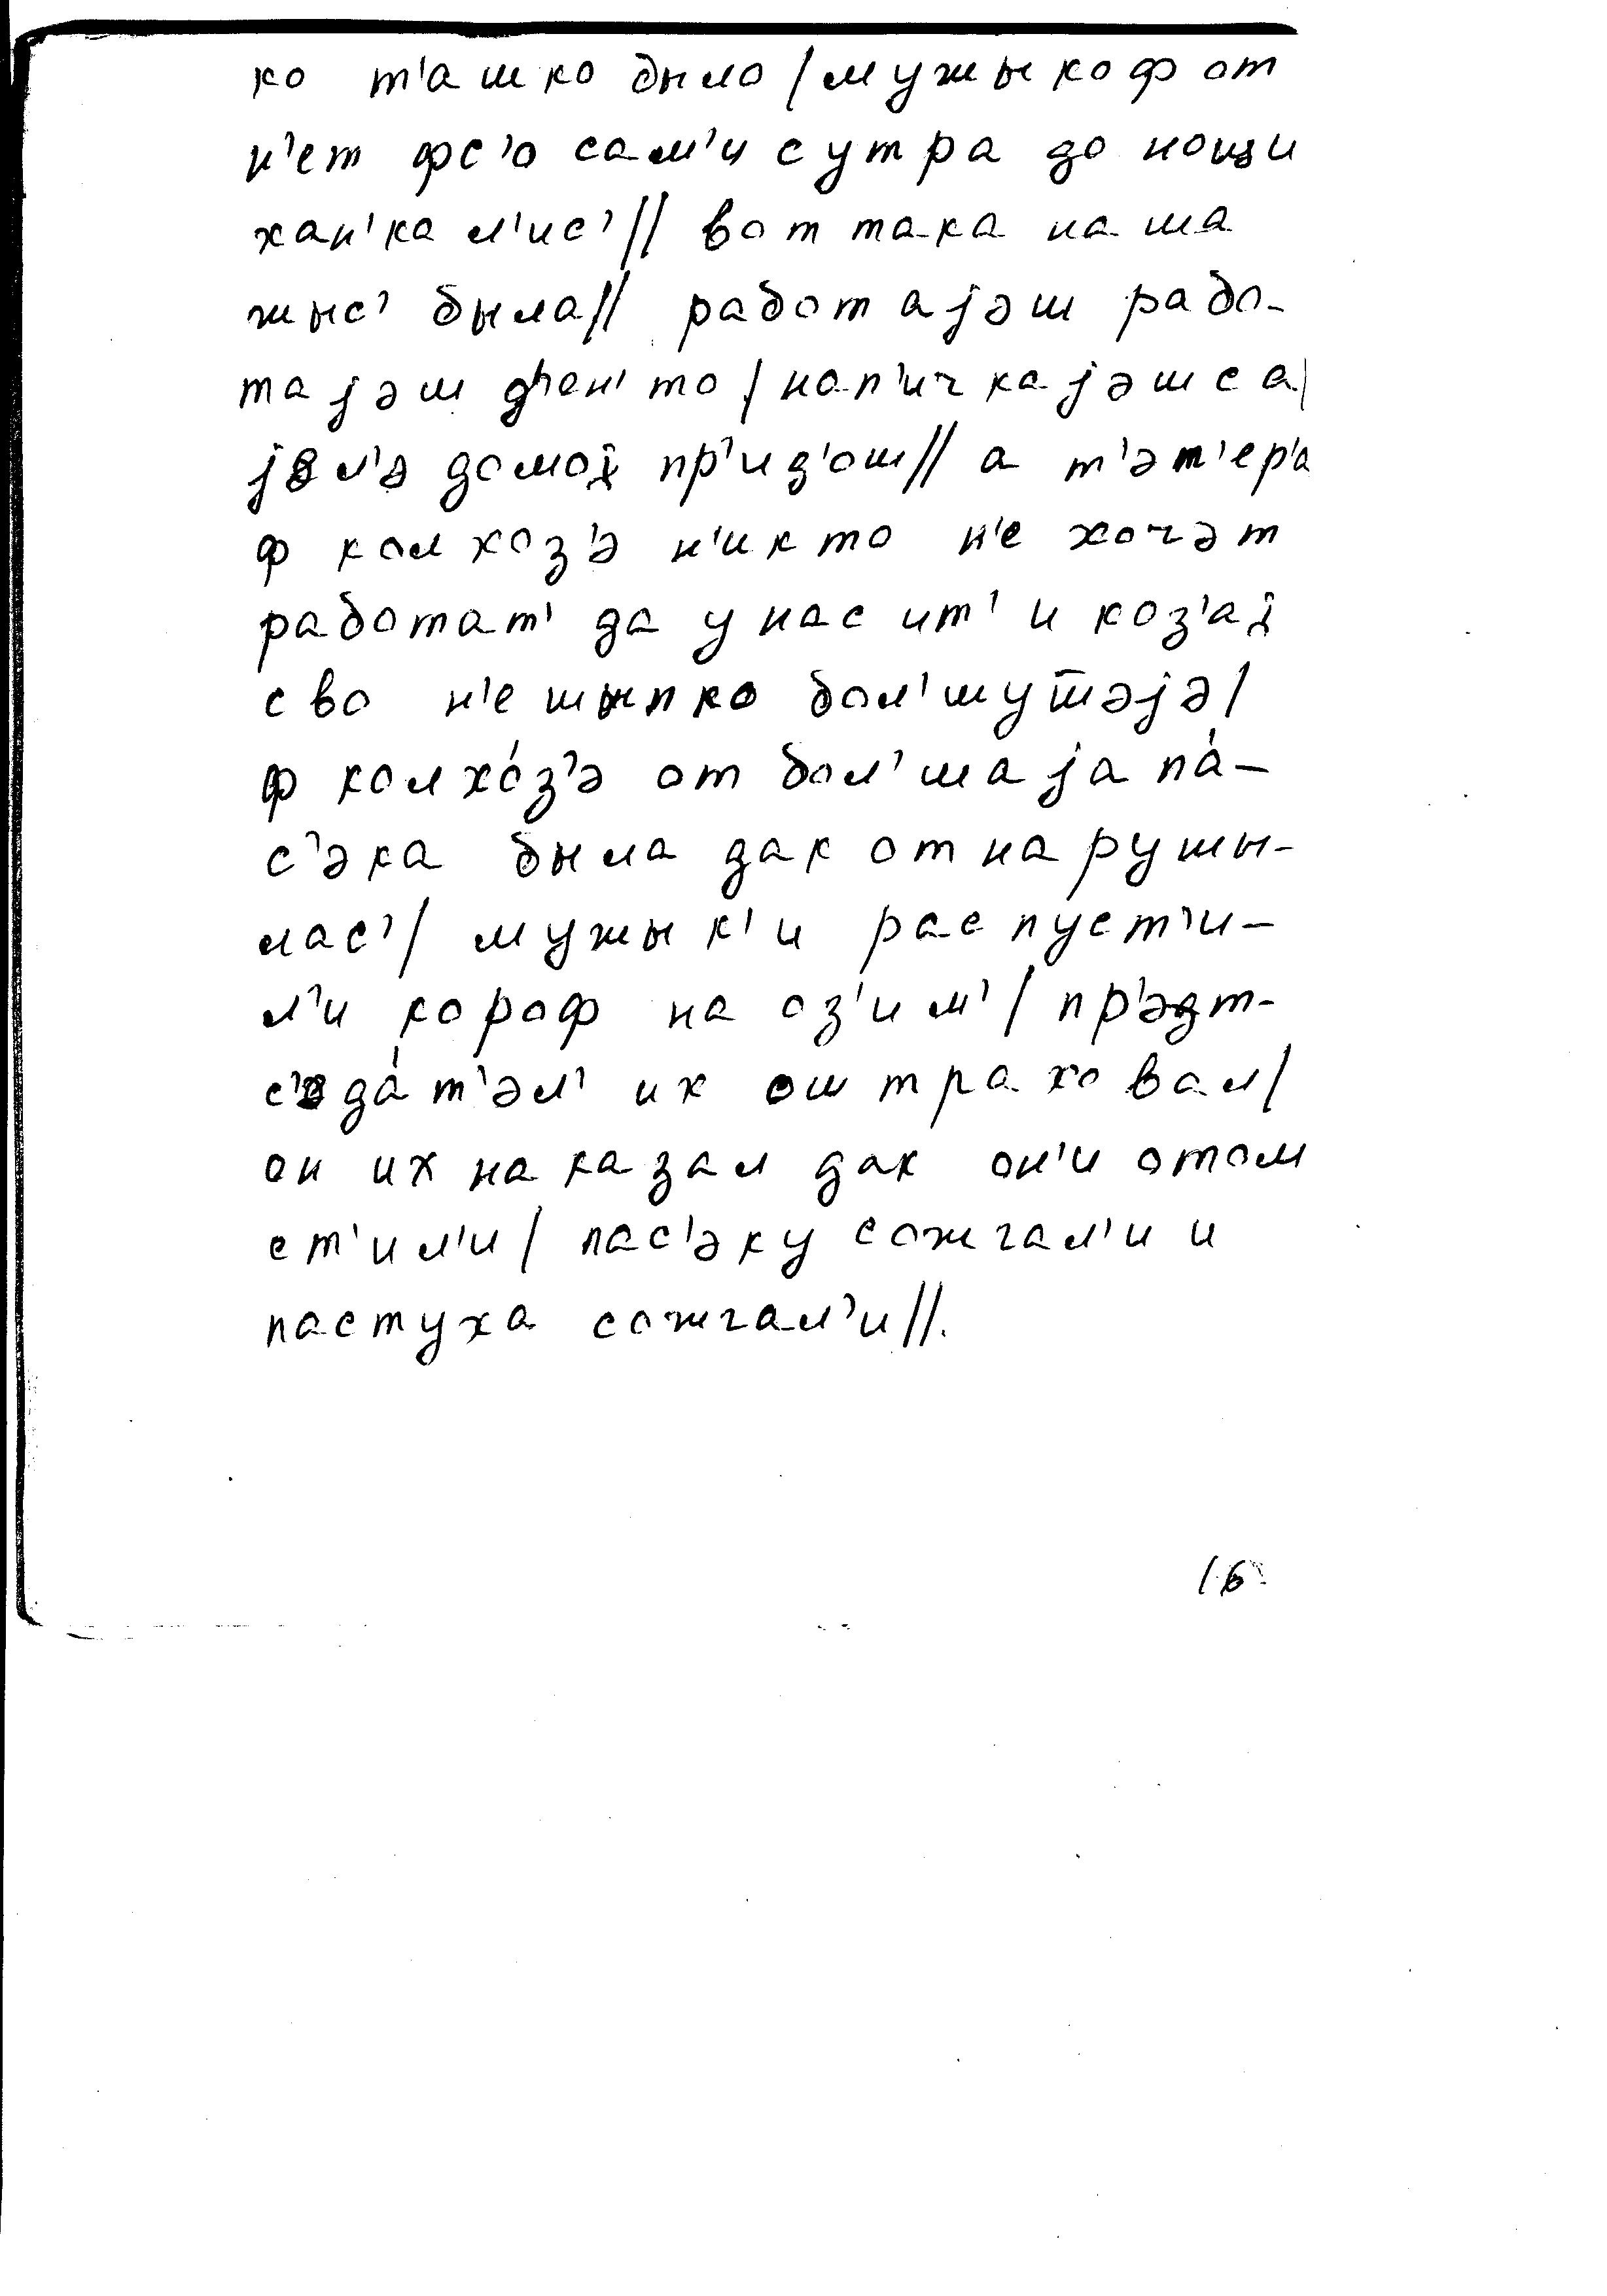 ко т'ашко было / мужыкоф от
н'ет фс'о сам'и сутра до ноши
хан'кал'ис' // вот така наша
жыс' была // работајэш рабо-
тајэш д'ен'то / нап'ичкајэшса /
јэл'э домој пр'ид'ош // а т'эт'ер'а
ф колхоз'э н'икто н'е хочэт
работат' да у нас ит' и коз'ај
сво н'е шыпко бол'шушэјэ /
ф колхо́з'э от бол'шаја па́-
с'эка была дак от нарушы-
лас' / мужык'и распуст'и-
л'и короф на оз'им' / пр'эдт-
с'эда́т'эл' их оштраховал /
он их наказал дак он'и отом
ст'ил'и / пас'эку сожгал'и и
пастуха сожгал'и //.
16